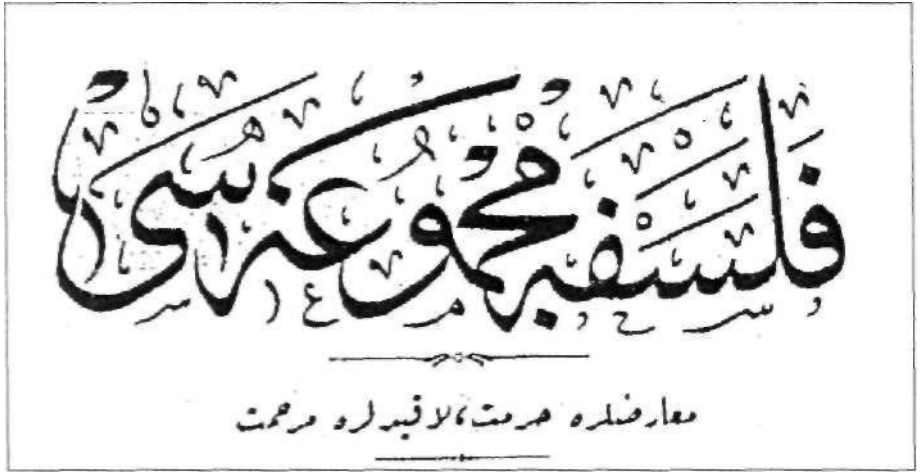 فلسفه مجموعه سی
معارضلره حرمت، لاقیدلره مرحمت